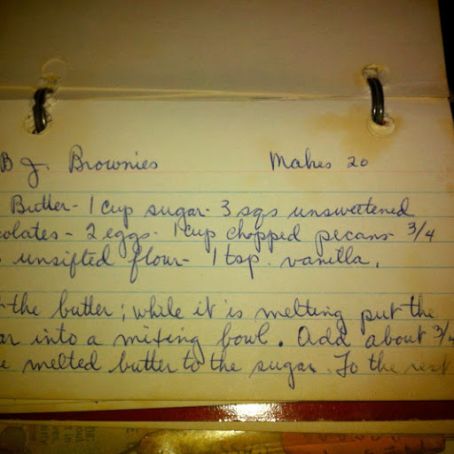 B J. Brownies Makes 20
Butter - 1 cup sugar - 3 sqs unsweetened
colates - 2 eggs - 1 cup chopped pecans - 3/4
unsifted flour - 1 tsp. vanilla.
the butter; while it is melting put the
ar into a mixing bowl. Add about 3/4
e melted butter to the sugar. To the rest